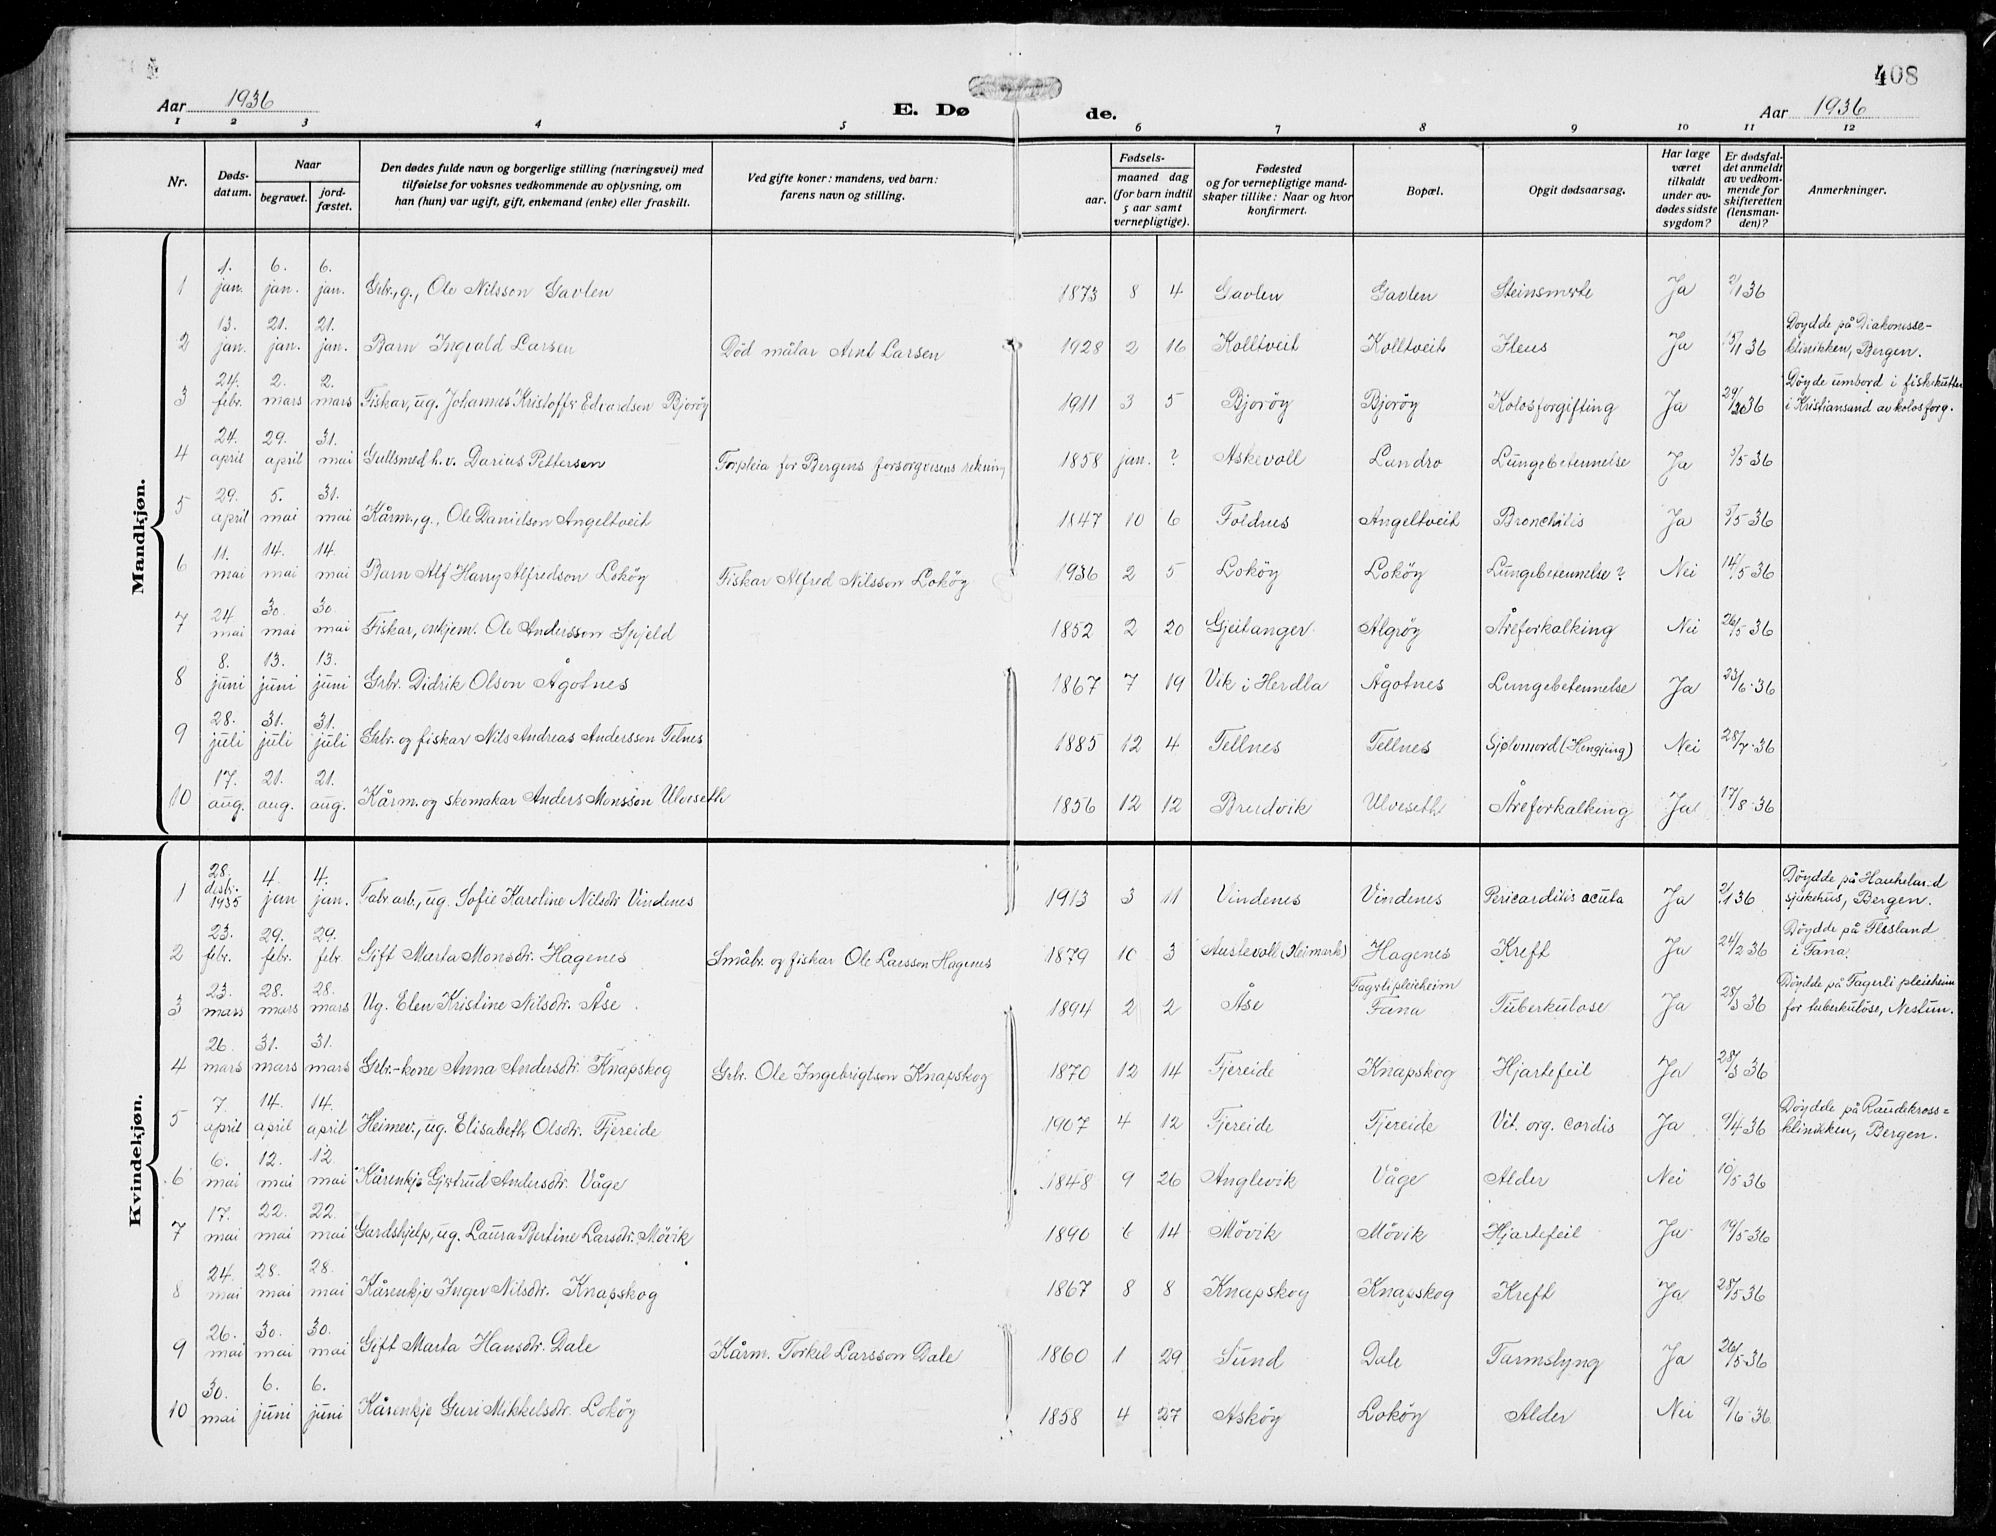 408
Aar 1936
E. Dø
de.
Aar 1936
1 2 3 4 5 6 7 8 9 10 11 12
Nr.
Døds-
datum.
Naar
begravet.
jord-
fæstet.
Den dødes fulde navn og borgerlige stilling (næringsvei) med
tilføielse for voksnes vedkommende av oplysning, om
han (hun) var ugift, gift, enkemand (enke) eller fraskilt.
Ved gifte koner: mandens, ved barn:
farens navn og stilling.
Fødsels-
aar.
maaned dag
(for barn indtil
5 aar samt
vernepligtige).
Fødested
og for vernepligtige mand-
skaper tillike: Naar og hvor
konfirmert.
Bopæl.
Opgit dødsaarsag.
Har læge
været
tilkaldt
under av-
dødes sidste
sygdom?
Er dødsfal-
det anmeldt
av vedkom-
mende for
skifteretten
(lensman-
den)?
Anmerkninger.
Mandkjøn.
1 1. jan. 6. jan. 6. jan. Grbr., g., Ole Nilsson Gavlen 1873 8 4 Gavlen Gavlen Steinsmerte Ja 2/1 36
2 13. jan. 21. jan. 21. jan. Barn Ingvald Larsen Død målar Arnt Larsen 1928 2 16 Kolltveit Kolltveit Ileus Ja 15/1 36 Døydde på Diakonisse-
klinikken, Bergen.
3 24. febr. 2. mars 2. mars Fiskar, ug. Johannes Kristoffer Edvardson Bjorøy 1911 3 5 Bjorøy Bjorøy Kolosforgifting Ja 29/2 36 Døyde umbord i fiskekutter
i Kristiansand av kolosforg.
4 24. april 29. april 31. mai Gullsmed h.v. Darius Pettersen Forpleia for Bergens forsorgvesens rekning 1858 jan. ? Askevoll Landro Lungebetennelse Ja 5/5 36
5 29. april 5. mai 31. mai Kårm., g., Ole Danielson Angeltveit 1847 10 6 Foldnes Angeltveit Bronchitis Ja 5/5 36
6 11. mai 14. mai 14. mai Barn Alf Harry Alfredson Lokøy Fiskar Alfred Nilsson Lokøy 1936 2 5 Lokøy Lokøy Lungebetennelse? Nei 14/5 36
7 24 mai 30. mai 30. mai Fiskar, enkjem. Ole Andersson Spjeld 1852 2 20 Gjeitanger Algrøy Åreforkalking Nei 26/5 36
8 8. juni 13. juni 13. juni Grbr. Didrik Olson Ågotnes 1867 7 19 Vik i Herdla Ågotnes Lungebetennelse Ja 23/6 36
9 28. juli 31. juli 31. juli Grbr. og fiskar Nils Andreas Andersson Telnes 1885 12 4 Tellnes Tellnes Sjølvmord (Hengjing) Nei 28/7 36
10 17. aug. 21. aug. 21. aug. Kårm. og skomakar Anders Monsson Ulveseth 1856 12 12 Breidvik Ulveseth Åreforkalking Ja 17/8 36
Kvindekjøn.
1 28. desbr. 1935 4. jan 4. jan. Fabr.arb., ug. Sofie Karoline Nilsdtr. Vindenes 1913 3 11 Vindenes Vindenes Pericarditis acuta Ja 2/1 36 Døydde på Haukeland
sjukehus, Bergen.
2 23. febr. 29. febr. 29. febr Gift Marta Monsdtr. Hagenes Småbr. og fiskar Ole Larsson Hagenes 1879 10 3 Austevoll (Heimark) Hagenes Kreft Ja 24/2 36 Døydde på Flesland
i Fana.
3 23. mars 28. mars 28. mars Ug. Elen Kristine Nilsdtr. Åse 1894 2 2 Åse Fagerli pleieheim
Fana Tuberkulose Ja 28/3 36 Døydde på Fagerli pleieheim
for tuberkuløse, Nestun.
4 26. mars 31. mars 31. mars Grbr.-kone Anna Andersdtr. Knapskog Grbr. Ole Ingebrigtson Knapskog 1870 12 14 Fjereide Knapskog Hjartefeil Ja 28/3 36
5 7. april 14. april 14. april Heimev., ug. Elisabeth Olsdtr. Fjereide 1907 4 12 Fjereide Fjereide Vit. org. cordis Ja 9/4 36 Døydde på Raudekross=
klinikken, Bergen.
6 6. mai 12. mai 12 mai Kårenkje Gjertrud Andersdtr. Våge 1848 9 26 Anglevik Våge Alder Nei 10/5 36
7 17. mai 22. mai 22. mai Gardshjelp, ug. Laura Bertine Larsdtr. Møvik 1890 6 14 Møvik Møvik Hjartefeil Ja 19/5 36
8 24. mai 28. mai 28. mai Kårenkje Inger Nilsdtr. Knapskog 1867 8 8 Knapskog Knapskog Kreft Ja 28/5 36
9 26. mai 30. mai 30. mai Gift Marta Hansdtr. Dale Kårm. Torkel Larsson Dale 1860 1 29 Sund Dale Tarmslyng Ja 26/5 36
10 30. mai 6. juni 6. juni Kårenkje Guri Mikkelsdtr. Lokøy 1858 4 27 Askøy Lokøy Alder Nei 9/6 36